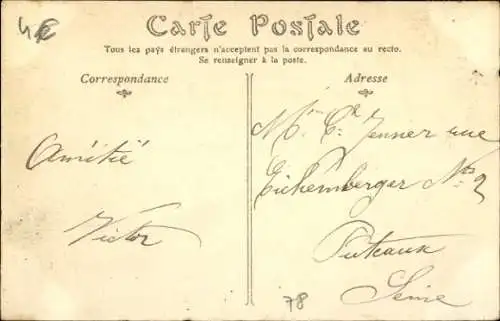 4€
Carte Postale
Tous les pays étrangers n'acceptent pas la correspondance au recto.
Se renseigner à la poste.
Correspondance
Adresse
Amitié
Victor
Mr Ch. Jenner rue
Eichenberger No 2
Puteaux
Seine
78